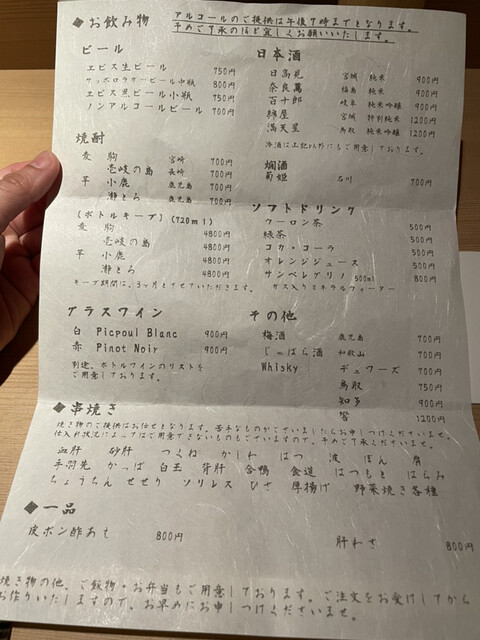 ◆お飲み物
アルコールのご提供は午後7時までとなります。
予めご了承のほど宜しくお願いいたします。
ビール
ヱビス生ビール 750円
サッポロラガービール中瓶 800円
ヱビス黒ビール小瓶 750円
ノンアルコールビール 700円
焼酎
麦 駒 宮崎 700円
壱岐の島 長崎 700円
芋 小鹿 鹿児島 700円
灘とろ 鹿児島 700円
(ボトルキープ)(720ml)
麦 駒 4800円
壱岐の島 4800円
芋 小鹿 4800円
灘とろ 4800円
キープ期間は、3ヶ月とさせていただきます。
グラスワイン
白 Picpoul Blanc 900円
赤 Pinot Noir 900円
別途、ボトルワインのリストを
ご用意しております。
日本酒
日高見 宮城 純米 900円
奈良萬 福島 純米 900円
百十郎 岐阜 純米吟醸 900円
綿屋 宮城 特別純米 1200円
満天星 鳥取 純米吟醸 1200円
冷酒は上記以外にもご用意しております。
燗酒
菊姫 石川 700円
ソフトドリンク
ウーロン茶 500円
緑茶 500円
コカ・コーラ 500円
オレンジジュース 500円
サンペレグリノ 500ml 800円
ガス入りミネラルウォーター
その他
梅酒 鹿児島 700円
じゃばら酒 和歌山 700円
Whisky デュワーズ 700円
鳥取 750円
知多 900円
響 1200円
◆串焼き
焼き物のご提供はお任せとなります。苦手なものがございましたらお申しつけくださいませ。
仕入れ状況によってはご用意できないものもございますので、予めご了承くださいませ。
血肝 砂肝 つくね かしわ はつ 波 ぼん 肩
手羽先 かっぱ 白玉 背肝 合鴨 食道 はつもと はらみ
ちょうちん せせり ソリレス ひざ 厚揚げ 野菜焼き各種
◆一品
皮ポン酢あえ 800円
肝わさ 800円
焼き物の他、ご飯物・お弁当もご用意しております。ご注文をお受けしてから
お作りいたしますので、お早めにお申しつけくださいませ。